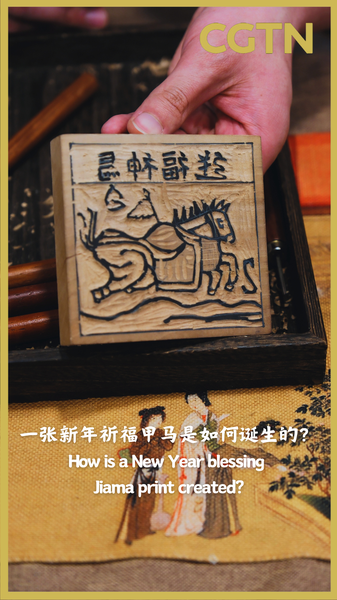 CGTN
一张新年祈福甲马是如何诞生的?
How is a New Year blessing
Jiama print created?